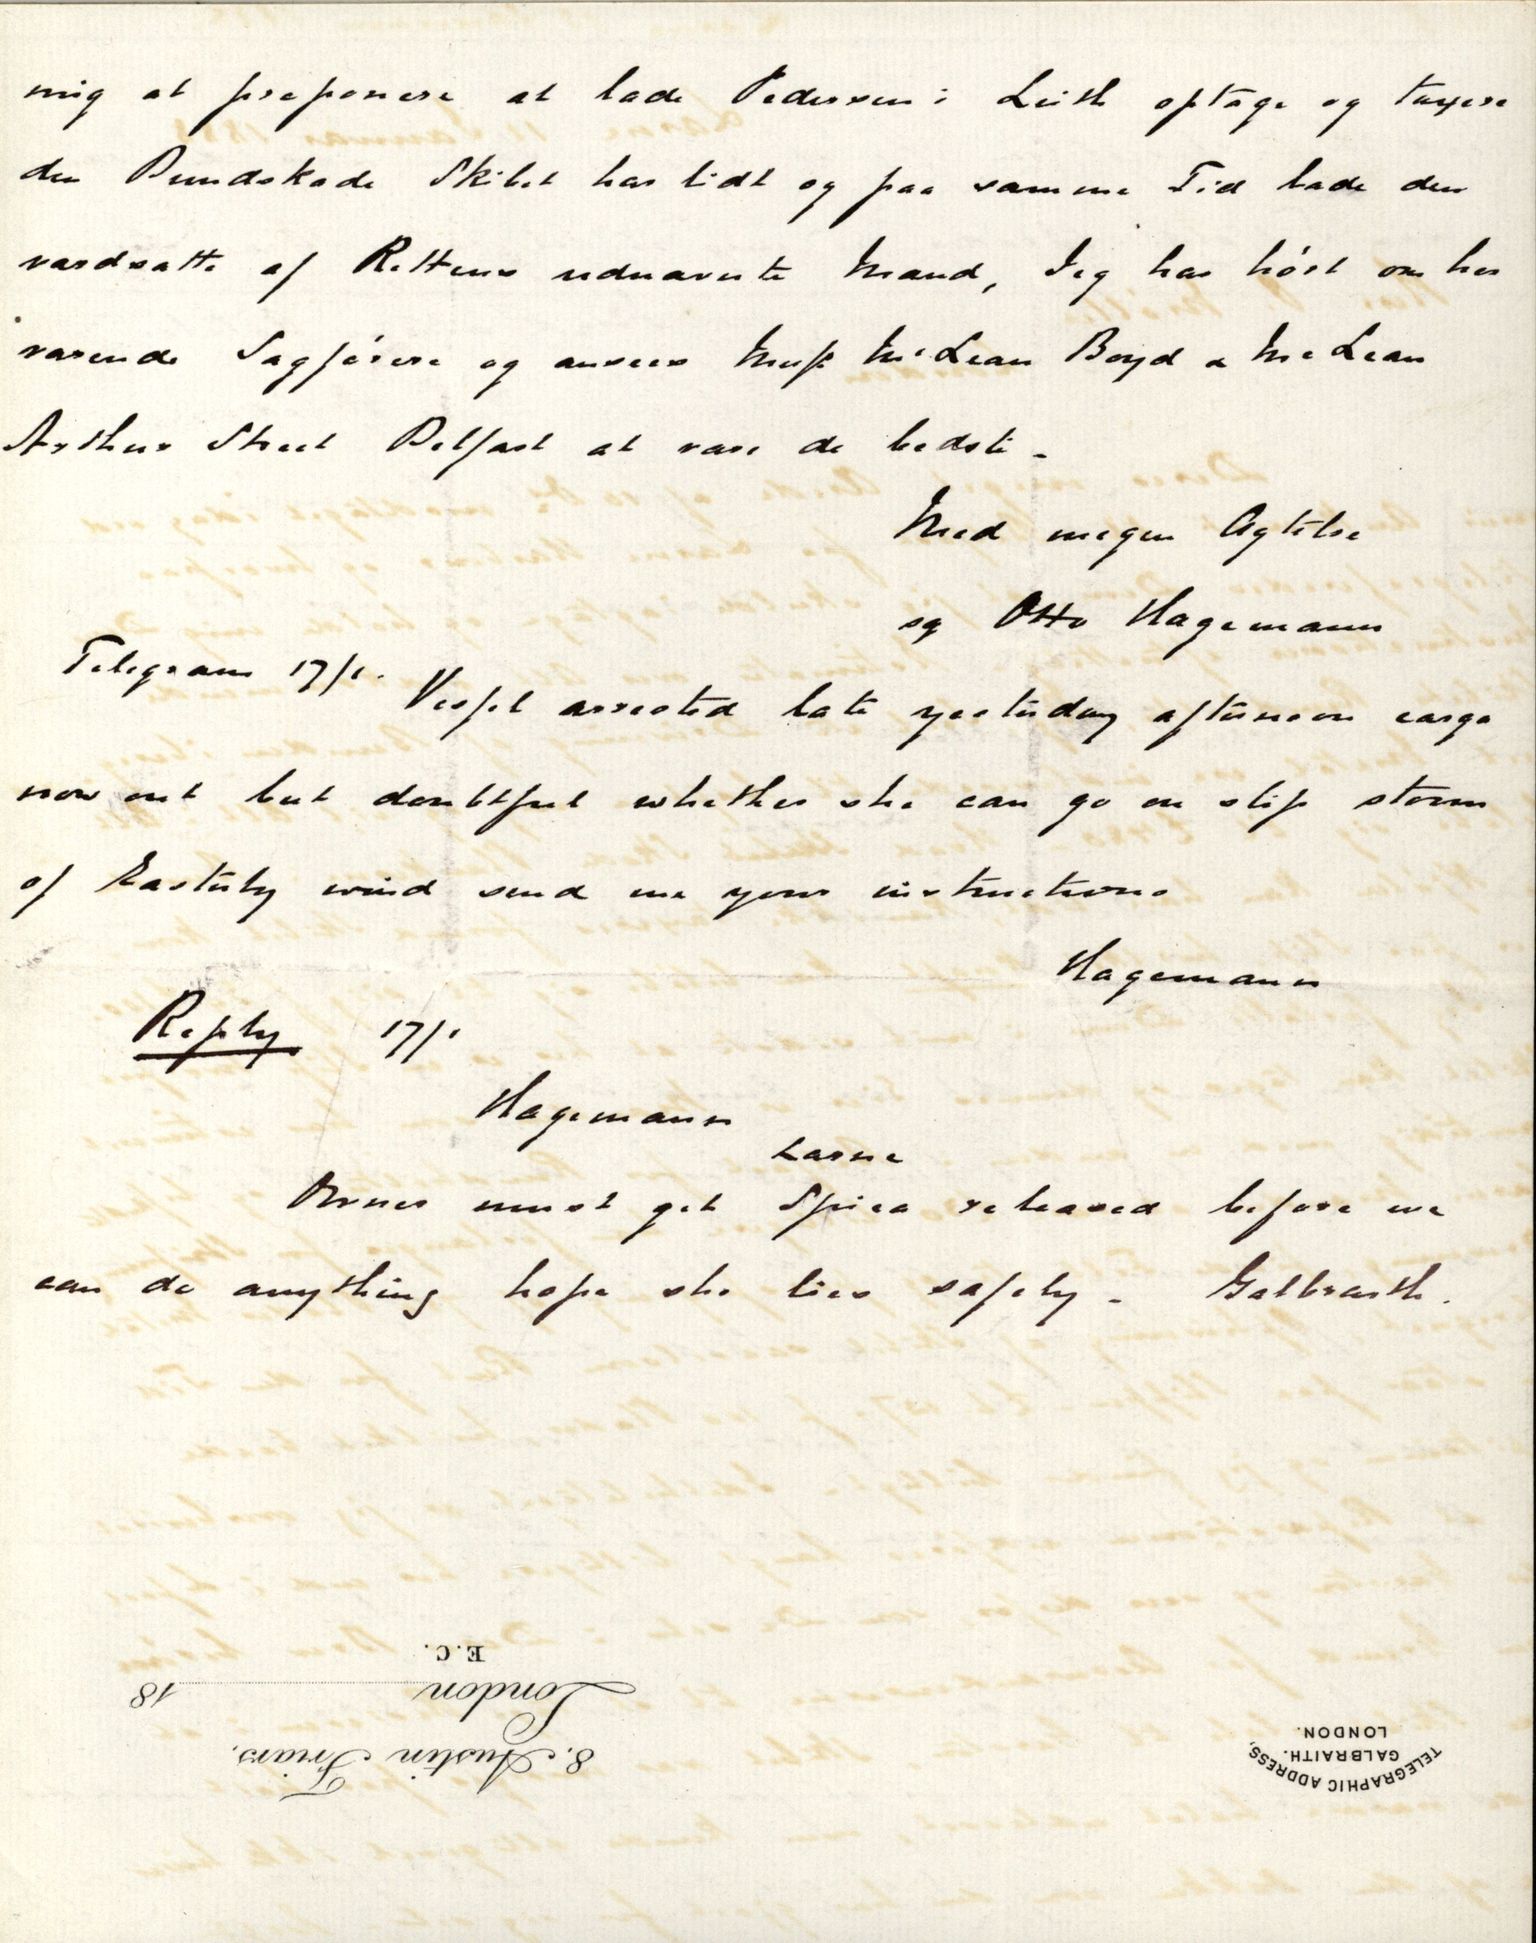 mig at proponere at lade Pedersen i Leith optage og taxere
den Bundskade Skibet har lidt og paa samme Tid lade den
værdsatte af Rettens udnævnte Mænd, Jeg har hört om her
værende Sagförere og ansees Mess McLean Boyd & McLean
Arthur Street Belfast at være de bedste -
Med megen Agtelse
sg Otto Hagemann
Telegram 17/1.
Vessel arrested late yesterday afternoon cargo
now out but doubtful whether she can go on slip storm
of Easterly wind send me your instructions
Hagemann
Reply 17/1
Hagemann
Larne
Owner must get Spica released before we
can do anything hope she lies safely - Galbraith.
8. Austin Friars,
London 18
E.C.
TELEGRAPHIC ADDRESS,
GALBRAITH.
LONDON.